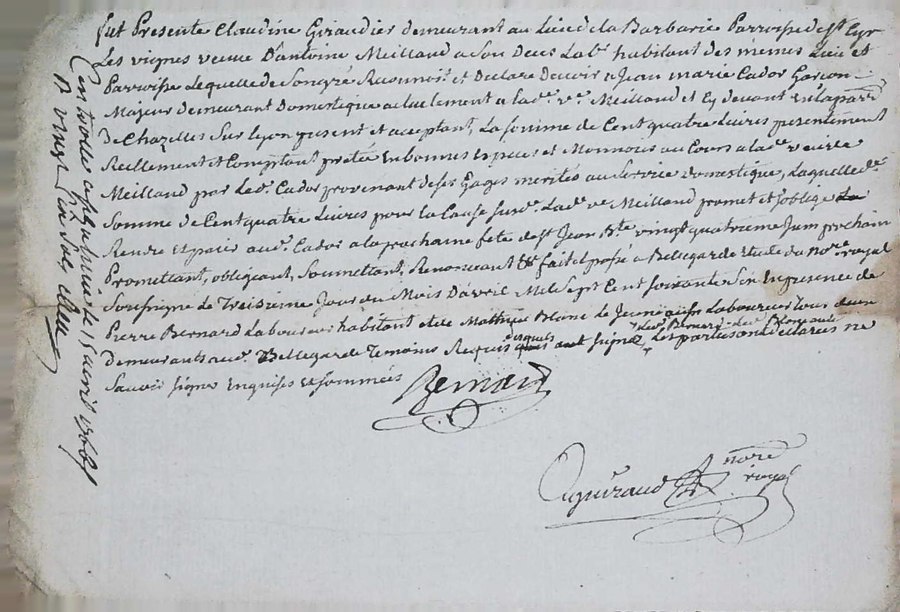 fut Presente Claudine Giraudier demeurant au Lieu de la Barbarie Parroisse de st Cyr
Les vignes veuve D'antoine Meilland a Son Deces Labr habitant des memes Lieu et
Parroisse Lequelle de Son gre Reconnoit et Declare Devoir a Jean marie Cador Garcon
Majeur demeurant Domestique actuelement a lade ve Meilland et Cy devant en la parr
de Chazelles Sur Lyon present et acceptant, La Somme de Cent quatre Livres presentement
Reellement et Comptant pretée En bonnes Especes et Monnoies au Cours a lade veuve
Meilland par Ledt Cador provenant de ses Gages merités au Service domestique, Laquelle de
Somme de Cent quatre Livres pour la Cause Susde Lade ve Meilland promet et s'oblige La
Rendre et paier audt Cador a la prochaine fete de st Jean Bte vingt quatrieme Juin prochain
Promettant, obligeant, Soumettant, Renonceant &c fait et passé a Bellegarde etude du nore royal
Soussigné le Treizieme Jour du Mois D'avril Mil Sept Cent Soixante Six En presence de
Pierre Bernard Laboureur habitant et de Matthieu Blanc Le Jeune aussi Laboureur Tous deux
demeurants audt Bellegarde Temoins Requis lesquels ont Signé Les parties ont declarés ne
Savoir Signer Enquises et Sommées
Bernard
nore
royal
Controllé